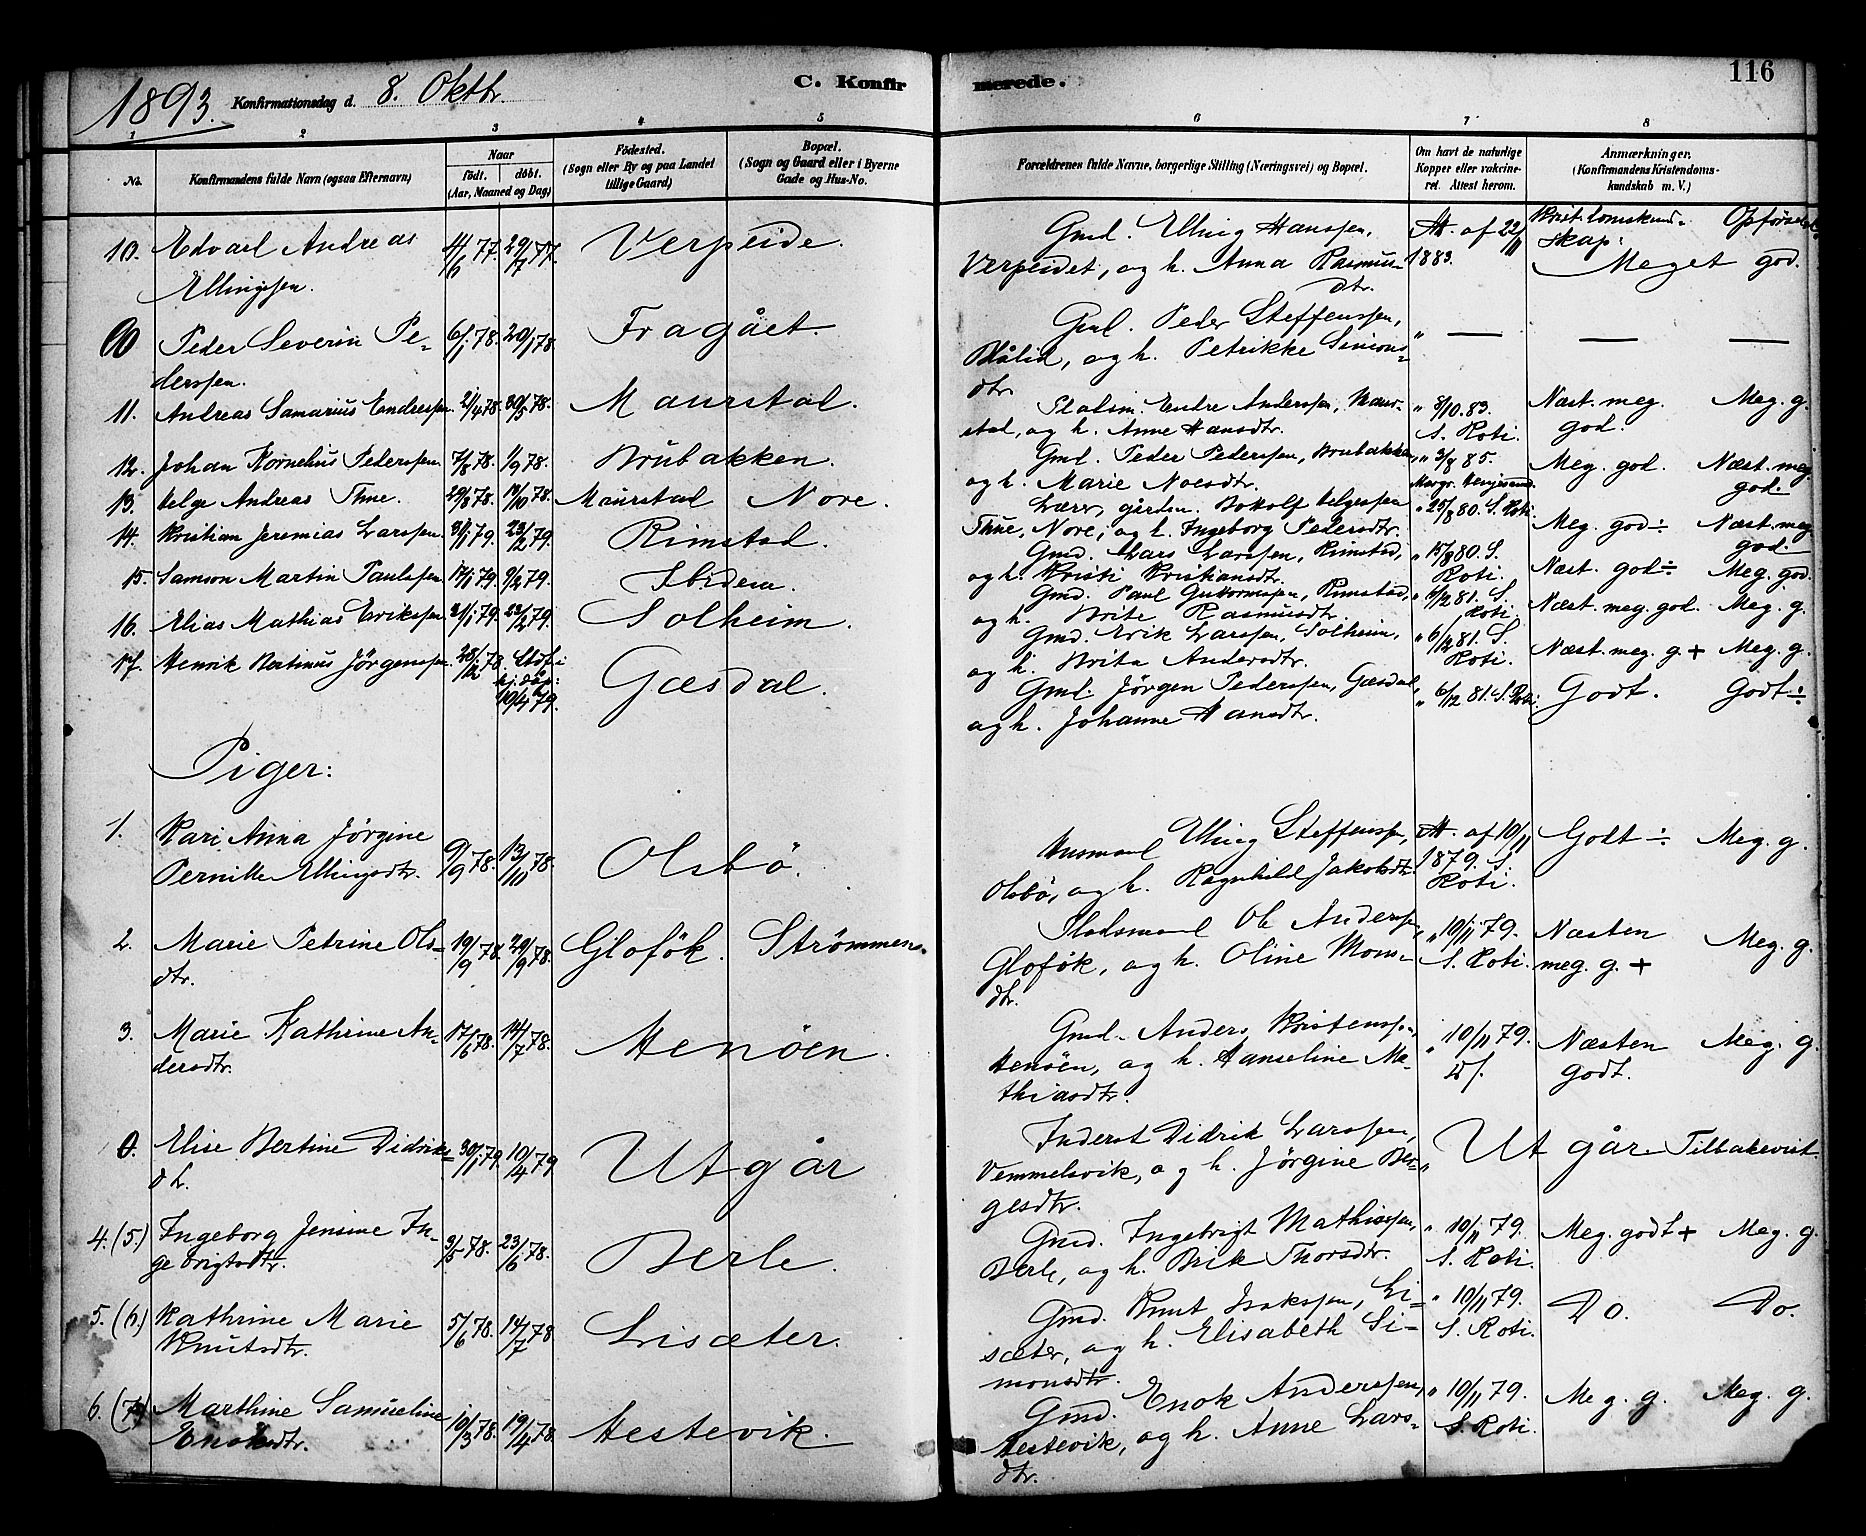 1893. Konfirmationsdag d. 8. Oktbr. C. Konfirmerede. 116
1 2 3 4 5 6 7 8
No. Konfirmandens fulde Navn (ogsaa Efternavn) Naar født. døbt. (Aar, Maaned og Dag) Fødested. (Sogn eller By og paa Landet tillige Gaard) Bopæl. (Sogn og Gaard eller i Byerne Gade og Hus-No. Forældrenes fulde Navne, borgerlige Stilling (Næringsvei) og Bopæl. Om havt de naturlige Kopper eller vakcineret. Attest herom. Anmærkninger. (Konfirmandens Kristendomskundskab m. V.)
Kristendomskundskap: Opførsel
10. Edvard Andreas 4/6 77. 29/7 77. Verpeide. Gmd. Elling Hanssen, Att. af 22/11
Ellingssen. Verpeidet, og h. Anna Rasmusdtr. 1883. Meget god.
00 Peder Severin Pe- 6/1 78. 20/1 78. Fragået Gmd. Peder Steffenssen, " — — —
derssen. Blålid, og h. Petrikke Simonsdtr.
11. Andreas Samarius Endressen. 2/4 78. 30/5 78. Maurstad. Pladsm. Endre Anderssen, Maur- " 8/10. 83. Næst. meg. Meg. g.
stad, og h. Anne Hansdtr. S. Roti. god.
12. Johan Kornelius Pederssen. 7/8 78. 1/9 78. Brubakken. Gmd. Peder Pederssen, Brubakken, " 3/8 85. Meg. god. Næst. meg. god.
og h. Marie Noesdtr.
13. Helge Andreas Thue. 29/8 78. 19/10 78. Maurstad Nore. Lærer, gårdm. Botolf Helgessen " 25/8 80. S. Roti. Meg. god ÷ Næst. meg. god.
Thue, Nore, og h. Ingeborg Pedersdtr.
14. Kristian Jeremias Larssen. 31/1 79. 23/2 79. Rimstad. Gmd. Lars Larssen, Rimstad, " 15/8 80. S. Roti. Næst. god ÷ Meg. god.
og h. Kristi Kristiansdtr.
15. Samson Martin Paulssen 17/1 79. 9/2 79. Ibidem. Gmd. Paul Guttormssen, Rimstad, " 6/12 81. S. Roti. Næst. meg. god. Meg. g.
og h. Brite Rasmusdtr.
16. Elias Mathias Erikssen. 2/1 79. 23/2 79. Solheim. Gmd. Erik Larssen, Solheim, " 6/12 81. S. Roti. Næst. meg. g + Meg. g.
og h. Brita Andersdtr.
17. Henrik Bertinus Jørgenssen. 28/12 78. Stdf. hj. døp: 10/4 79. Gæsdal. Gmd. Jørgen Pederssen, Gæsdal, " 6/12 81. S. Roti. Godt. Godt ÷
og h. Johanne Hansdtr.
Piger:
1. Kari Anna Jørgine 9/9 78. 13/10 78. Olsbö. Husmand Elling Steffenssen, Att. af 10/11 Godt ÷ Meg. g.
Pernille Ellingsdtr. Olsbö, og h. Ragnhild Jakobsdtr. 1879. S. Roti.
2. Marie Petrine Ols- 19/9 78. 29/9 78. Gloføk. Strømmen. Pladsmand Ole Anderssen, " 10/11 79. Næsten Meg. g.
dtr. Gloføk, og h. Oline Mons- S. Roti. meg. g. +
dtr.
3. Marie Kathrine An- 17/6 78. 14/7 78. Henöen. Gmd. Anders Kristenssen, " 10/11 79. Næsten Meg. g.
dersdtr. Henöen, og h. Hanseline Ma- godt.
thiasdtr.
0. Elise Bertine Didriks- 30/1 79. 10/4 79 Utgår Inderst Didrik Larssen, " Utgår. Tilbakevist.
dtr. Vemmelsvik, og h. Jørgine Bør-
gesdtr.
4. (5.) Ingeborg Jensine In- 3/5 78. 23/6 78. Berle. Gmd. Ingebrigt Mathiassen, " 10/11 79. Meg. godt + Meg. g.
gebrigtsdtr. Berle, og h. Brit Thorsdtr. S. Roti.
5. (6.) Kathrine Marie 5/6 78. 14/7 78 Lisæter. Gmd. Knut Isakssen, Li- " 10/11 79. Do. Do.
Knutsdtr. sæter, og h. Elisabeth Si- S. Roti.
monsdtr.
6. (7.) Marthine Samueline 10/3 78. 19/4 78. Hestevik. Gmd. Enok Anderssen, " 10/11 79. Meg. g. Meg. g.
Enoksdtr. Hestevik, og h. Anne Lars- S. Roti.
dtr.